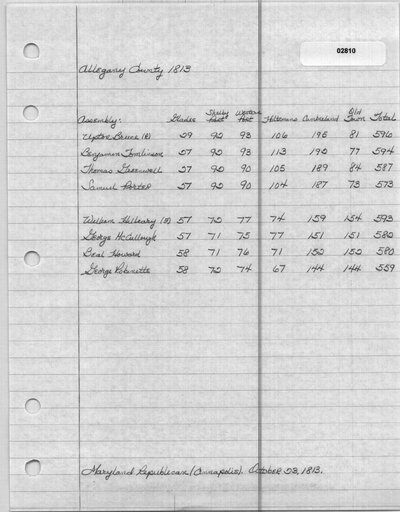 02810
Allegany County 1813
Shelby Western Old
Assembly: Glades Port Port Cumberland Town Total
Upton Bruce (R) 29 92 93 106 195 81 596
Benjamin Tomlinson 27 92 93 113 192 77 594
Thomas Greenwell 27 92 90 105 189 84 587
Samuel Porter 27 92 90 104 187 73 573
William Hilleary (F) 57 72 77 74 159 154 593
George McCullough 57 71 75 77 151 151 582
Beal Howard 58 71 76 71 152 152 580
George Robinette 58 72 74 67 144 144 559
Maryland Republican (Annapolis). October 23, 1813.